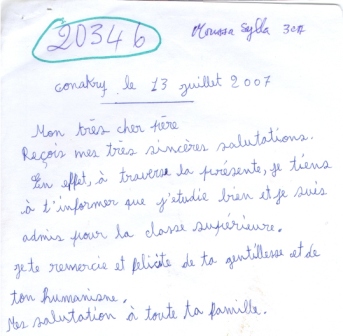 20346
Moussa Sylla
Conakry le 13 juillet 2007
Mon très cher père
Reçois mes très sincères salutations.
En effet, à traverse la présente, je tiens
à t'informer que j'etudie bien et je suis
admis pour la classe supérieure.
je te remercie et felicite de ta gentillesse et de
ton humanisne.
Mes salutation à toute ta famille.